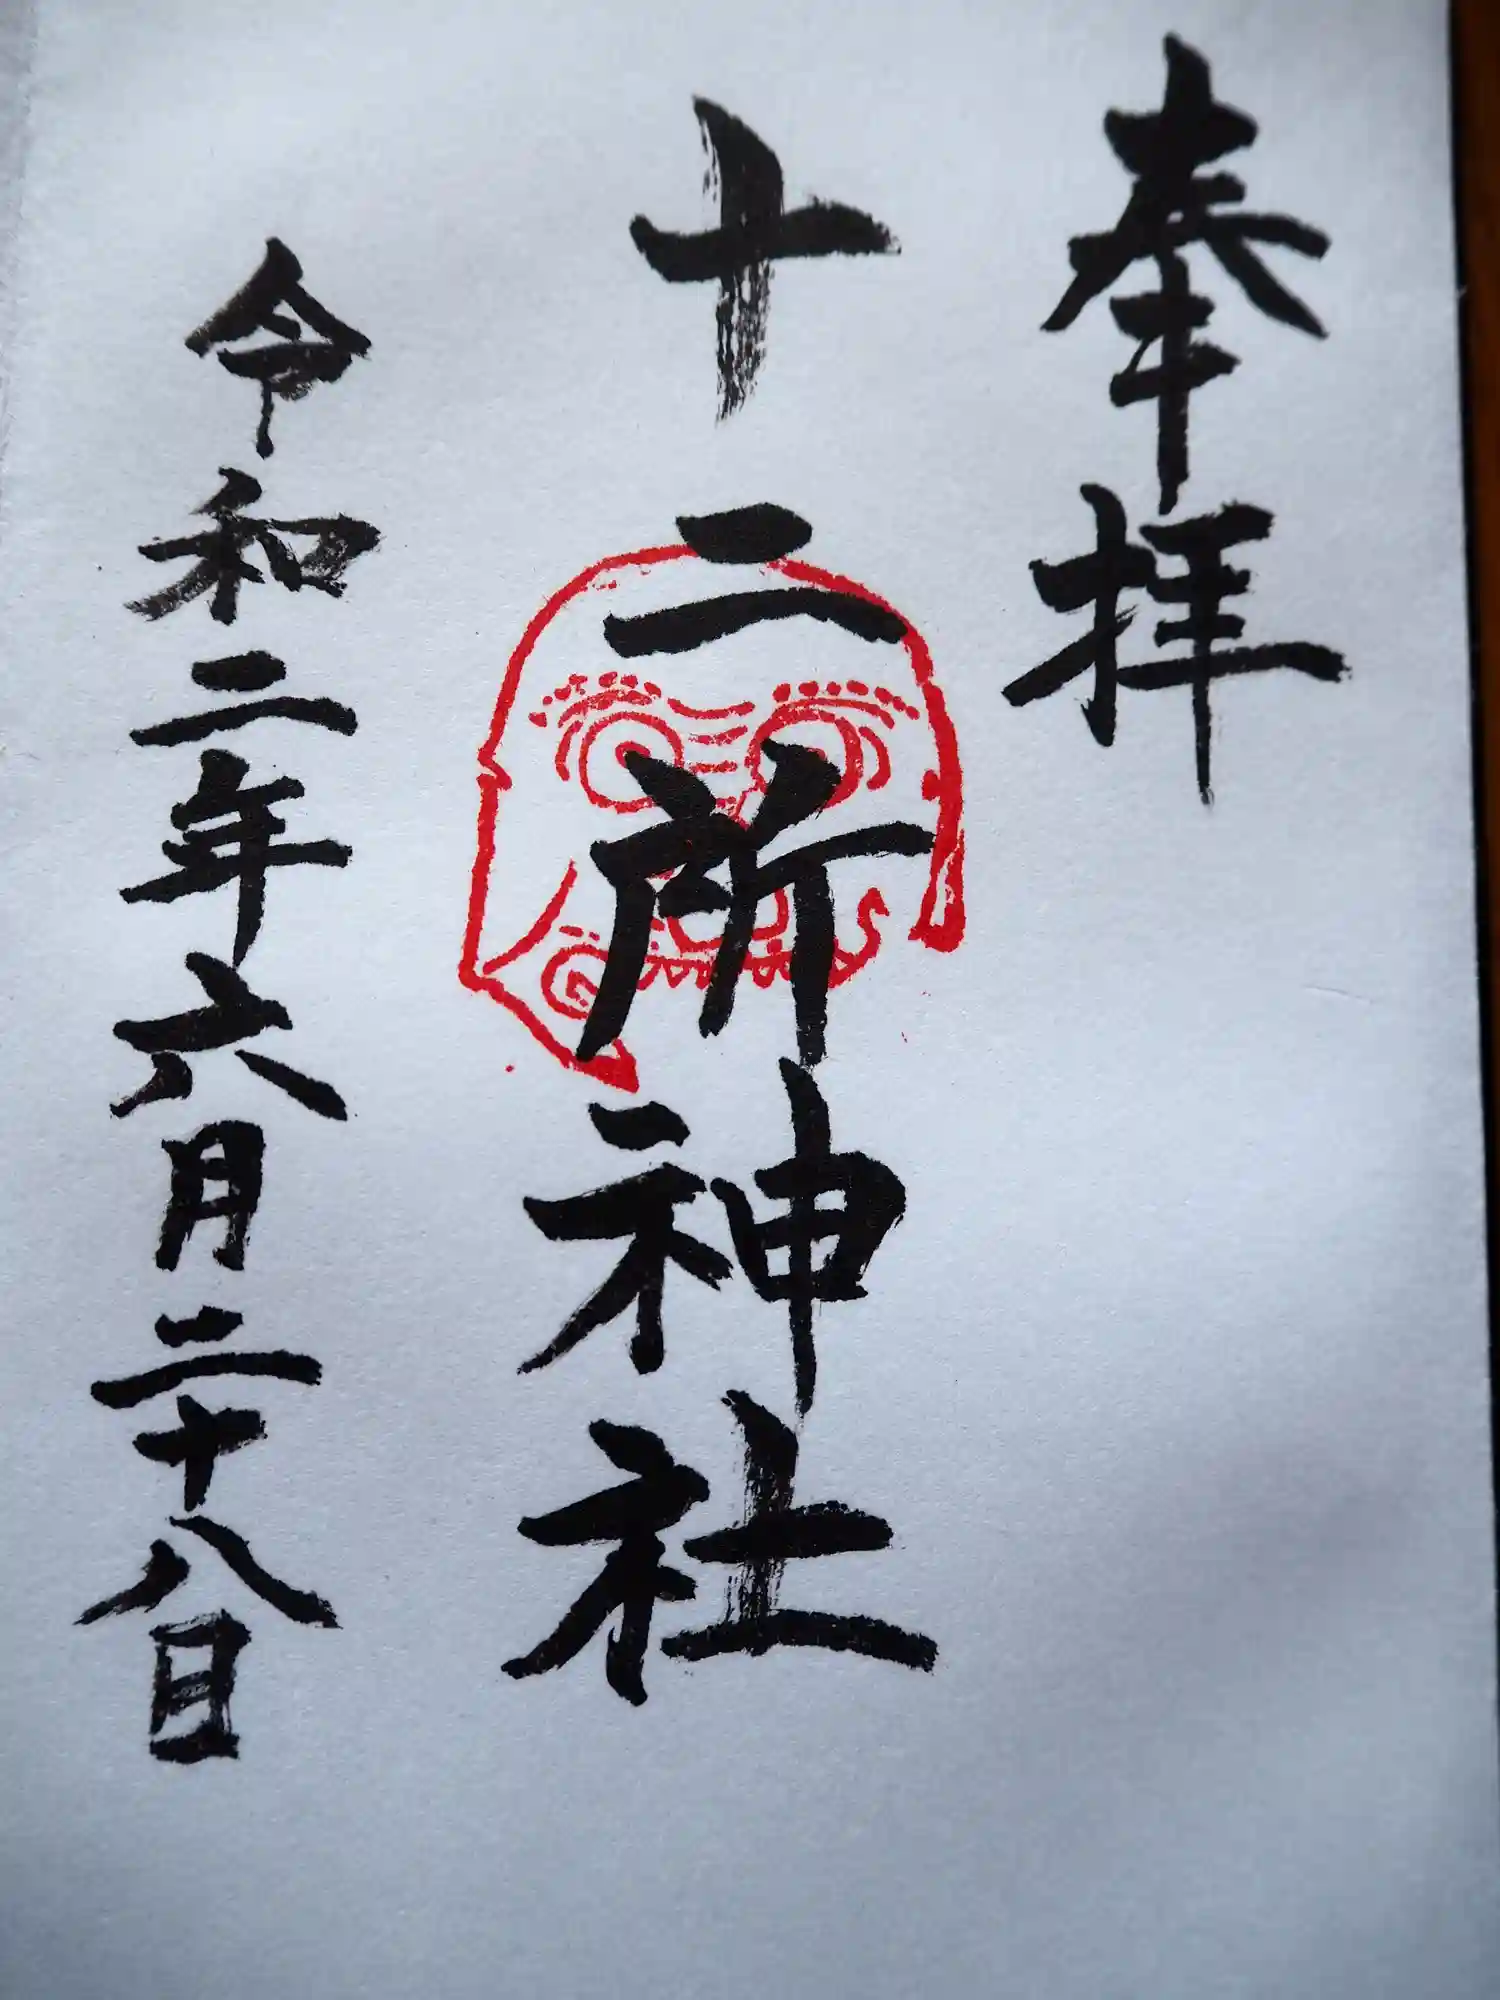 奉拝
十二所神社
令和二年六月二十八日